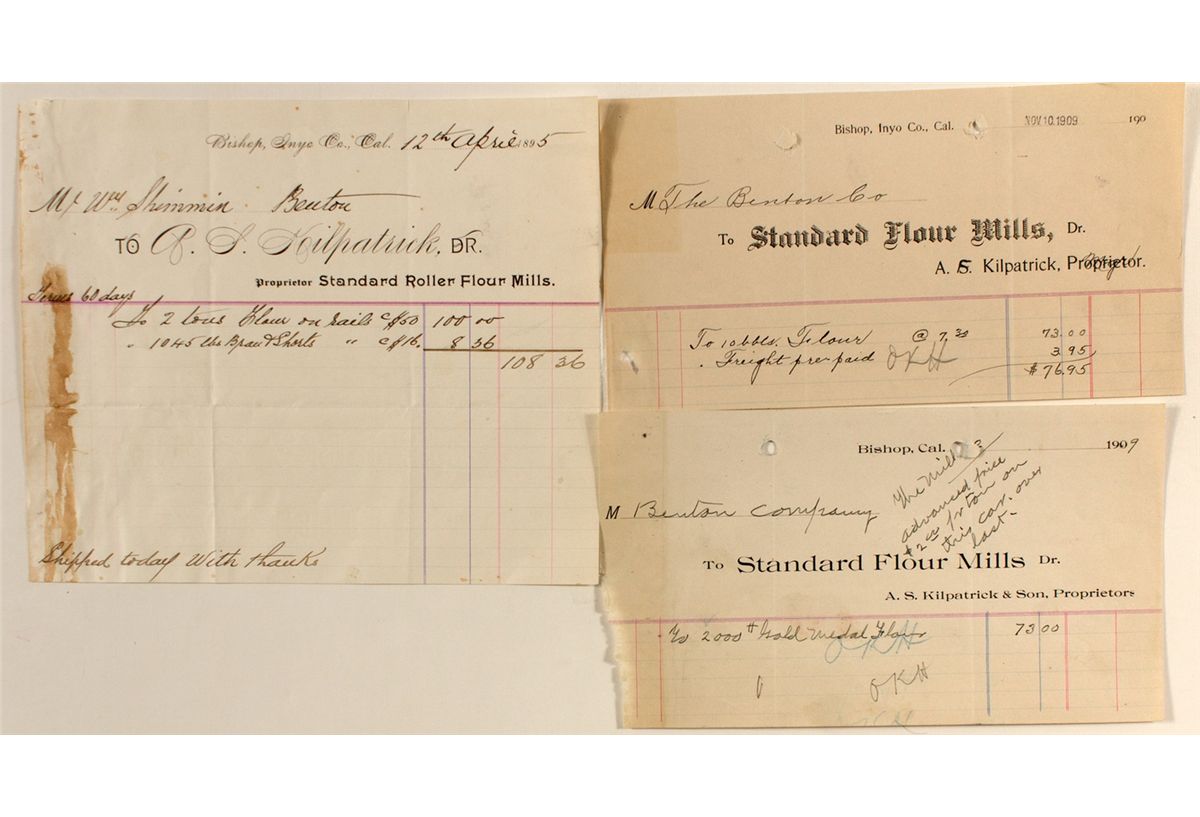 Bishop, Inyo Co., Cal. 12th April 1895
Mr Wm Shimmin Benton
TO A. S. Kilpatrick, DR.
Proprietor Standard Roller Flour Mills.
Terms 60 days
To 2 tons Flour on rails @ $50 100 00
" 1045 lbs Bran & Shorts " @ $16. 8 36
108 36
Shipped today With thanks
Bishop, Inyo Co., Cal. NOV 10.1909 190
M The Benton Co
To Standard Flour Mills, Dr.
A. S. Kilpatrick, Proprietor.
To 10 bbls. Flour @ 7.30 73.00
" Freight pre-paid OKH 3.95
$76.95
Bishop, Cal. 3 1909
M Benton Company
The Mill
advanced price
$2 00 pr ton on
this car over
last-
To Standard Flour Mills Dr.
A. S. Kilpatrick & Son, Proprietors
To 2000 # Gold Medal Flour 73 00
OKH
OKH